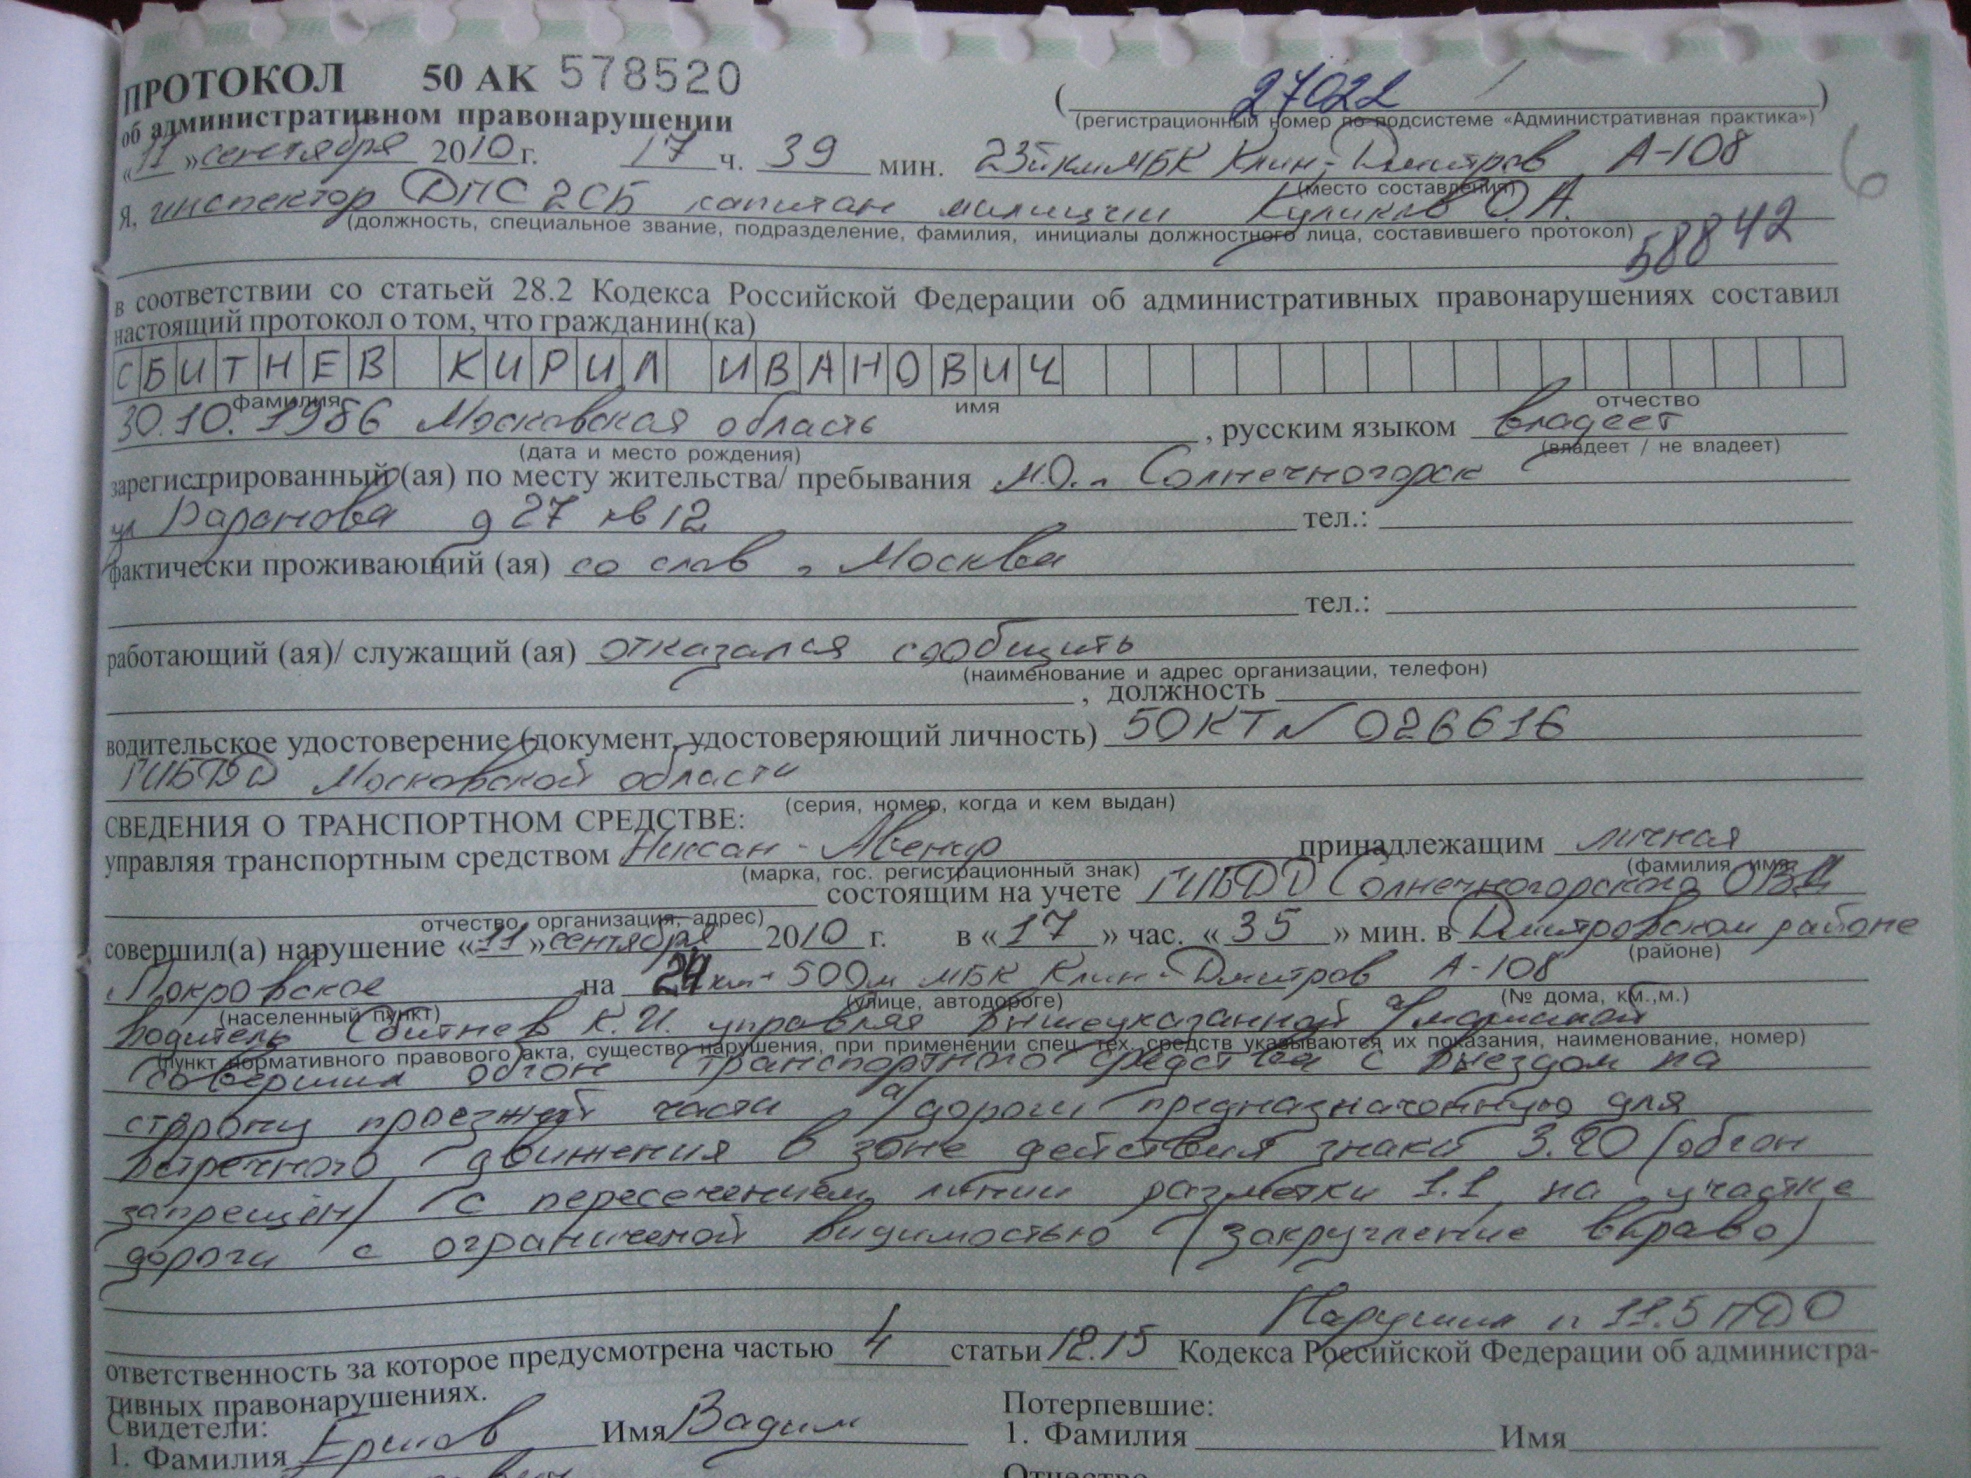 ПРОТОКОЛ 50 АК 578520
27022
об административном правонарушении
(регистрационный номер по подсистеме «Административная практика»)
«11» сентября 2010 г. 17 ч. 39 мин. 23й км МБК Клин-Дмитров А-108
6
(место составления)
Я, инспектор ДПС 2СБ капитан милиции Куликов О.А.
(должность, специальное звание, подразделение, фамилия, инициалы должностного лица, составившего протокол)
58842
в соответствии со статьей 28.2 Кодекса Российской Федерации об административных правонарушениях составил
настоящий протокол о том, что гражданин(ка)
СБИТНЕВ КИРИЛ ИВАНОВИЧ
фамилия имя отчество
30.10.1986 Московская область, русским языком владеет
(дата и место рождения) (владеет / не владеет)
зарегистрированный (ая) по месту жительства/ пребывания М.О. г. Солнечногорск
ул Баранова д 27 кв 12 тел.:
фактически проживающий (ая) со слов г. Москва
тел.:
работающий (ая)/ служащий (ая) отказался сообщить
(наименование и адрес организации, телефон)
, должность
водительское удостоверение (документ, удостоверяющий личность) 50 КТ № 026616
ГИБДД Московской области
(серия, номер, когда и кем выдан)
СВЕДЕНИЯ О ТРАНСПОРТНОМ СРЕДСТВЕ:
управляя транспортным средством Ниссан - принадлежащим личная
(марка, гос. регистрационный знак) (фамилия, имя
состоящим на учете ГИБДД Солнечногорского ОВД
отчество, организация, адрес)
совершил(а) нарушение «11» сентября 2010 г. в «17» час. «35» мин. в Дмитровском районе
(районе)
Покровское на 24 км + 500 м МБК Клин-Дмитров А-108
(населенный пункт) (улице, автодороге) (№ дома, км.,м.)
водитель Сбитнев К.И. управляя вышеуказанной а/машиной
(пункт нормативного правового акта, существо нарушения, при применении спец. тех. средств указываются их показания, наименование, номер)
совершил обгон транспортного средства с выездом на
сторону проезжей части а/дороги предназначенную для
встречного движения в зоне действия знака 3.20 (обгон
запрещён) с пересечением линии разметки 1.1 на участке
дороги с ограниченой видимостью (закругление вправо)
Нарушил п 11.5 ПДД
ответственность за которое предусмотрена частью 4 статьи 12.15 Кодекса Российской Федерации об администра-
тивных правонарушениях.
Свидетели: Потерпевшие:
1. Фамилия Имя Вадим 1. Фамилия Имя
Отчество